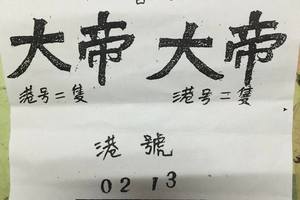 大帝 大帝
港号二隻 港号二隻
港號
0213